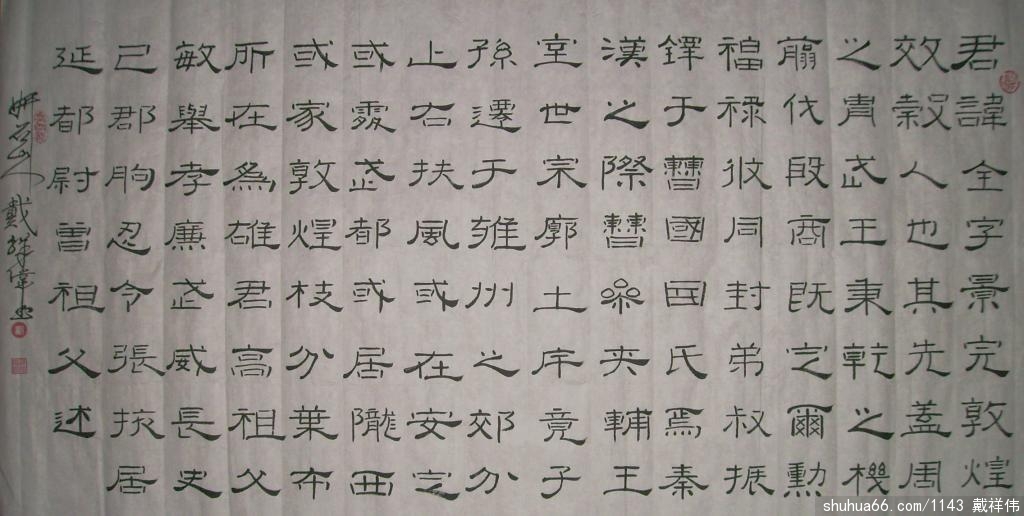 君諱全字景完敦煌
效穀人也其先蓋周
之胄武王秉乾之機
翦伐殷商既定爾勳
福祿攸同封弟叔振
鐸于曹國因氏焉秦
漢之際曹參夾輔王
室世宗廓土斥竟子
孫遷于雍州之郊分
止右扶風或在安定
或處武都或居隴西
或家敦煌枝分葉布
所在為雄君高祖父
敏舉孝廉武威長史
巴郡朐忍令張掖居
延都尉曾祖父述
戴祥偉書
shuhua66.com/1143 戴祥伟